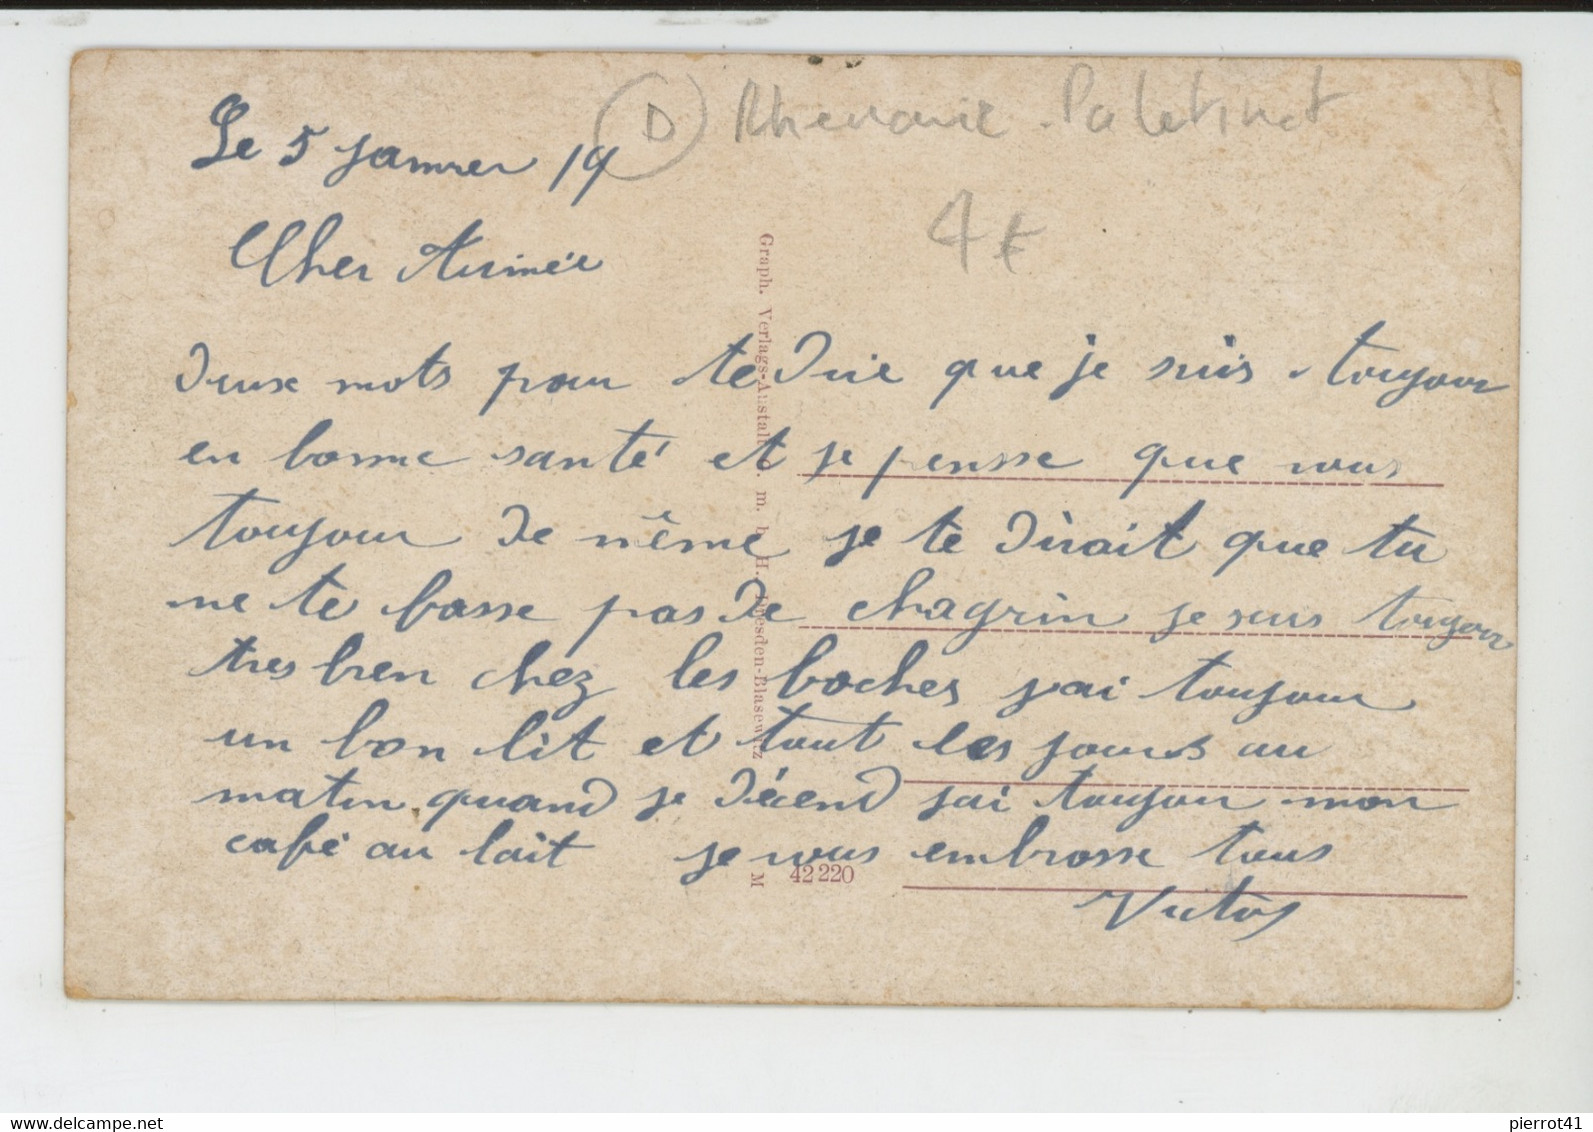 Le 5 janvier 19
(D) Rhenanie - Palatinat
4 €
Cher Aimée
Deux mots pour te Dire que je suis toujour
en bonne santé et je pensse que vous
toujour de même je te Dirait que tu
ne te basse pas De chagrin je suis toujour
tres bien chez les boches j'ai toujour
un bon lit et tout les jours au
matin quand je Décend j'ai toujour mon
café au lait je vous embrasse tous
Victor
Graph. Verlags-Anstalt G. m. b. H. Dresden-Blasewitz
M 42220
delcampe.net
pierrot41